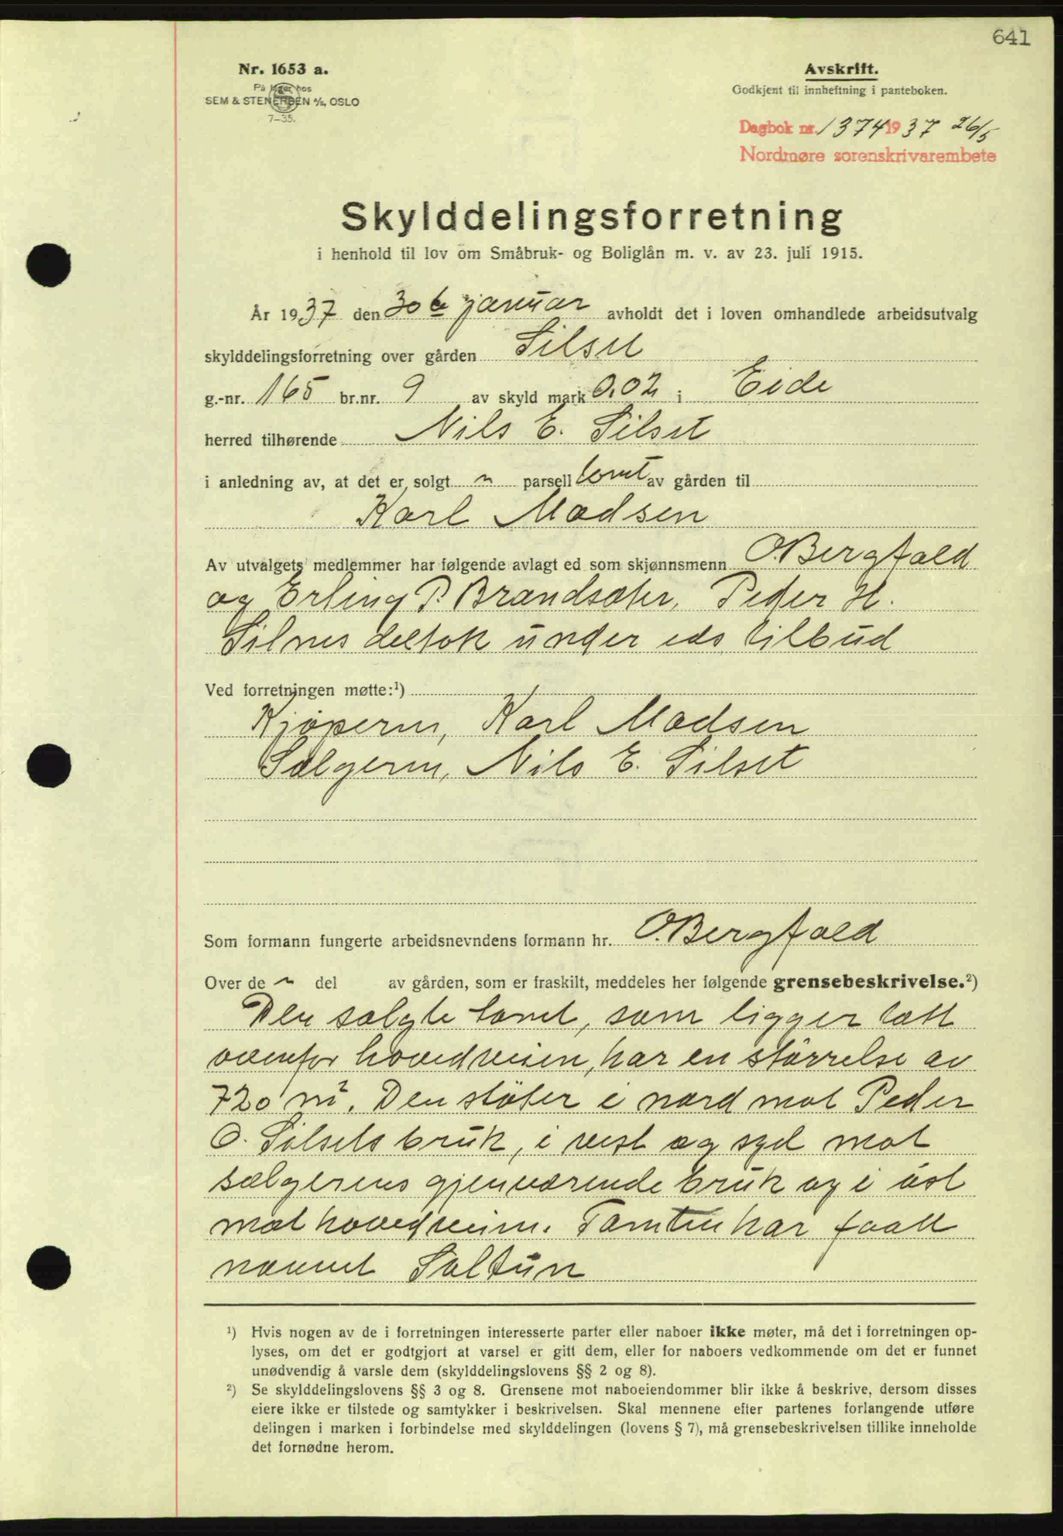 641
Nr. 1653 a.
På lager hos
SEM & STENERSEN A/S, OSLO
7-35.
Avskrift.
Godkjent til innheftning i panteboken.
Dagbok nr. 1374 1937 26/5
Nordmøre sorenskrivarembete
Skylddelingsforretning
i henhold til lov om Småbruk- og Boliglån m. v. av 23. juli 1915.
År 1937 den 30te januar avholdt det i loven omhandlede arbeidsutvalg
skylddelingsforretning over gården Silset
g.-nr. 165 br.nr. 9 av skyld mark 0.02 i Eide
herred tilhørende Nils E. Silset
i anledning av, at det er solgt parsell tomt av gården til
Karl Madsen
Av utvalgets medlemmer har følgende avlagt ed som skjønnsmenn O. Bergfald
og Erling P. Brandsæter, Peder H.
Silnes deltok under eds tilbud
Ved forretningen møtte:¹)
Kjøperen, Karl Madsen
Sælgeren, Nils E. Silset
Som formann fungerte arbeidsnevndens formann hr. O. Bergfald
Over de del av gården, som er fraskilt, meddeles her følgende grensebeskrivelse.²)
Den solgte tomt, som ligger tætt
ovenfor hovedveien, har en størrelse av
720 m². Den støter i nord mot Peder
O. Silsets bruk, i vest og syd mot
sælgerens gjenværende bruk og i øst
mot hovedveien. Tomten har faatt
navnet Soltun
¹) Hvis nogen av de i forretningen interesserte parter eller naboer ikke møter, må det i forretningen op-
lyses, om det er godtgjort at varsel er gitt dem, eller for naboers vedkommende om det er funnet
unødvendig å varsle dem (skylddelingslovens §§ 2 og 8).
²) Se skylddelingslovens §§ 3 og 8. Grensene mot naboeiendommer blir ikke å beskrive, dersom disses
eiere ikke er tilstede og samtykker i beskrivelsen. Skal mennene efter partenes forlangende utføre
delingen i marken i forbindelse med skylddelingen (lovens § 7), må grensebeskrivelsen tillike inneholde
det fornødne herom.